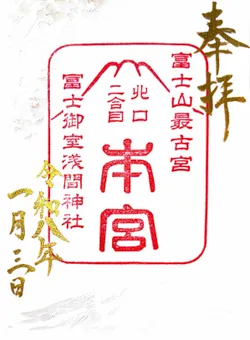 奉拝
富士山最古宮
北口
二合目
本宮
富士御室浅間神社
令和八年
一月三日